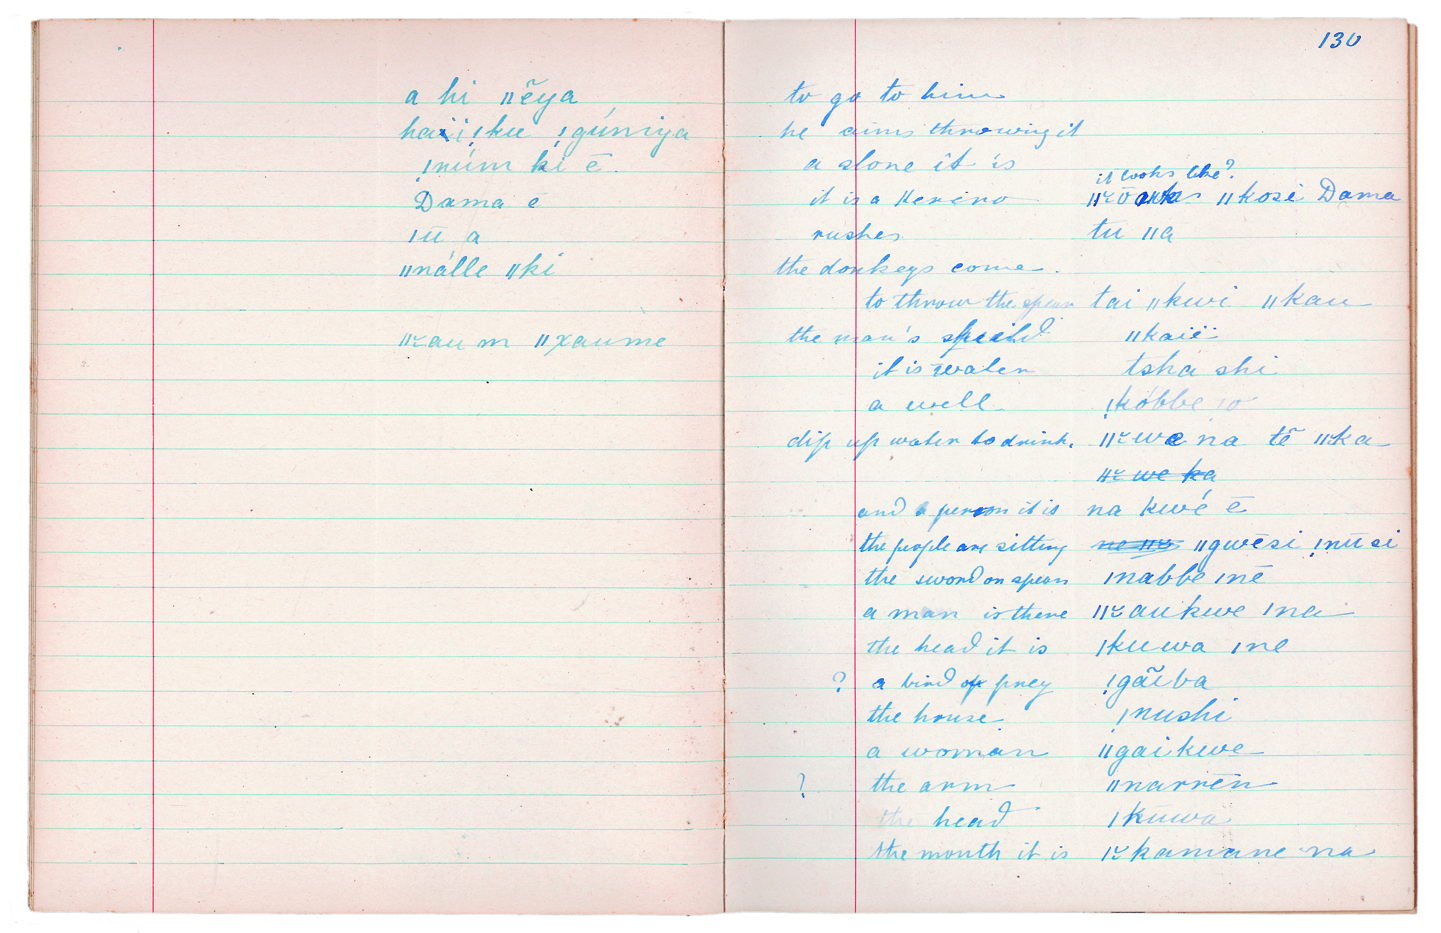 a hi ǁẽya
haïi ǃku ǃgúniya
ǃnúm ki ē.
Dama ē
ǀū a
ǁnálle ǁki
ǁ῾au m ǁxaume
130
to go to him
he aims throwing it
a stone it is
it looks like?
it is a Herero ǁkosi Dama
rushes tu ǁa
the donkeys come.
to throw the spear tai ǁkwi ǁkau
the man's ǁkaiï
it is water tsha shi
a well ǃkóbbe ǀo
dip up water to drink. ǁ῾we na tẽ ǁ῾ka
ǁ῾we ka
and a person it is na kwé ē
the people are sitting ǁgwēsi ǃnū si
the sword or spear ǀnabbe ǀnē
a man is there ǁ῾aukwe ǀna
the head it is ǀkuwa ǀne
? a bird of prey ǃgãiba
the house ǃnushi
a woman ǁgaikwe
? the arm ǁnarrēn
the head ǀkūwa
the mouth it is ǀ῾kamane na